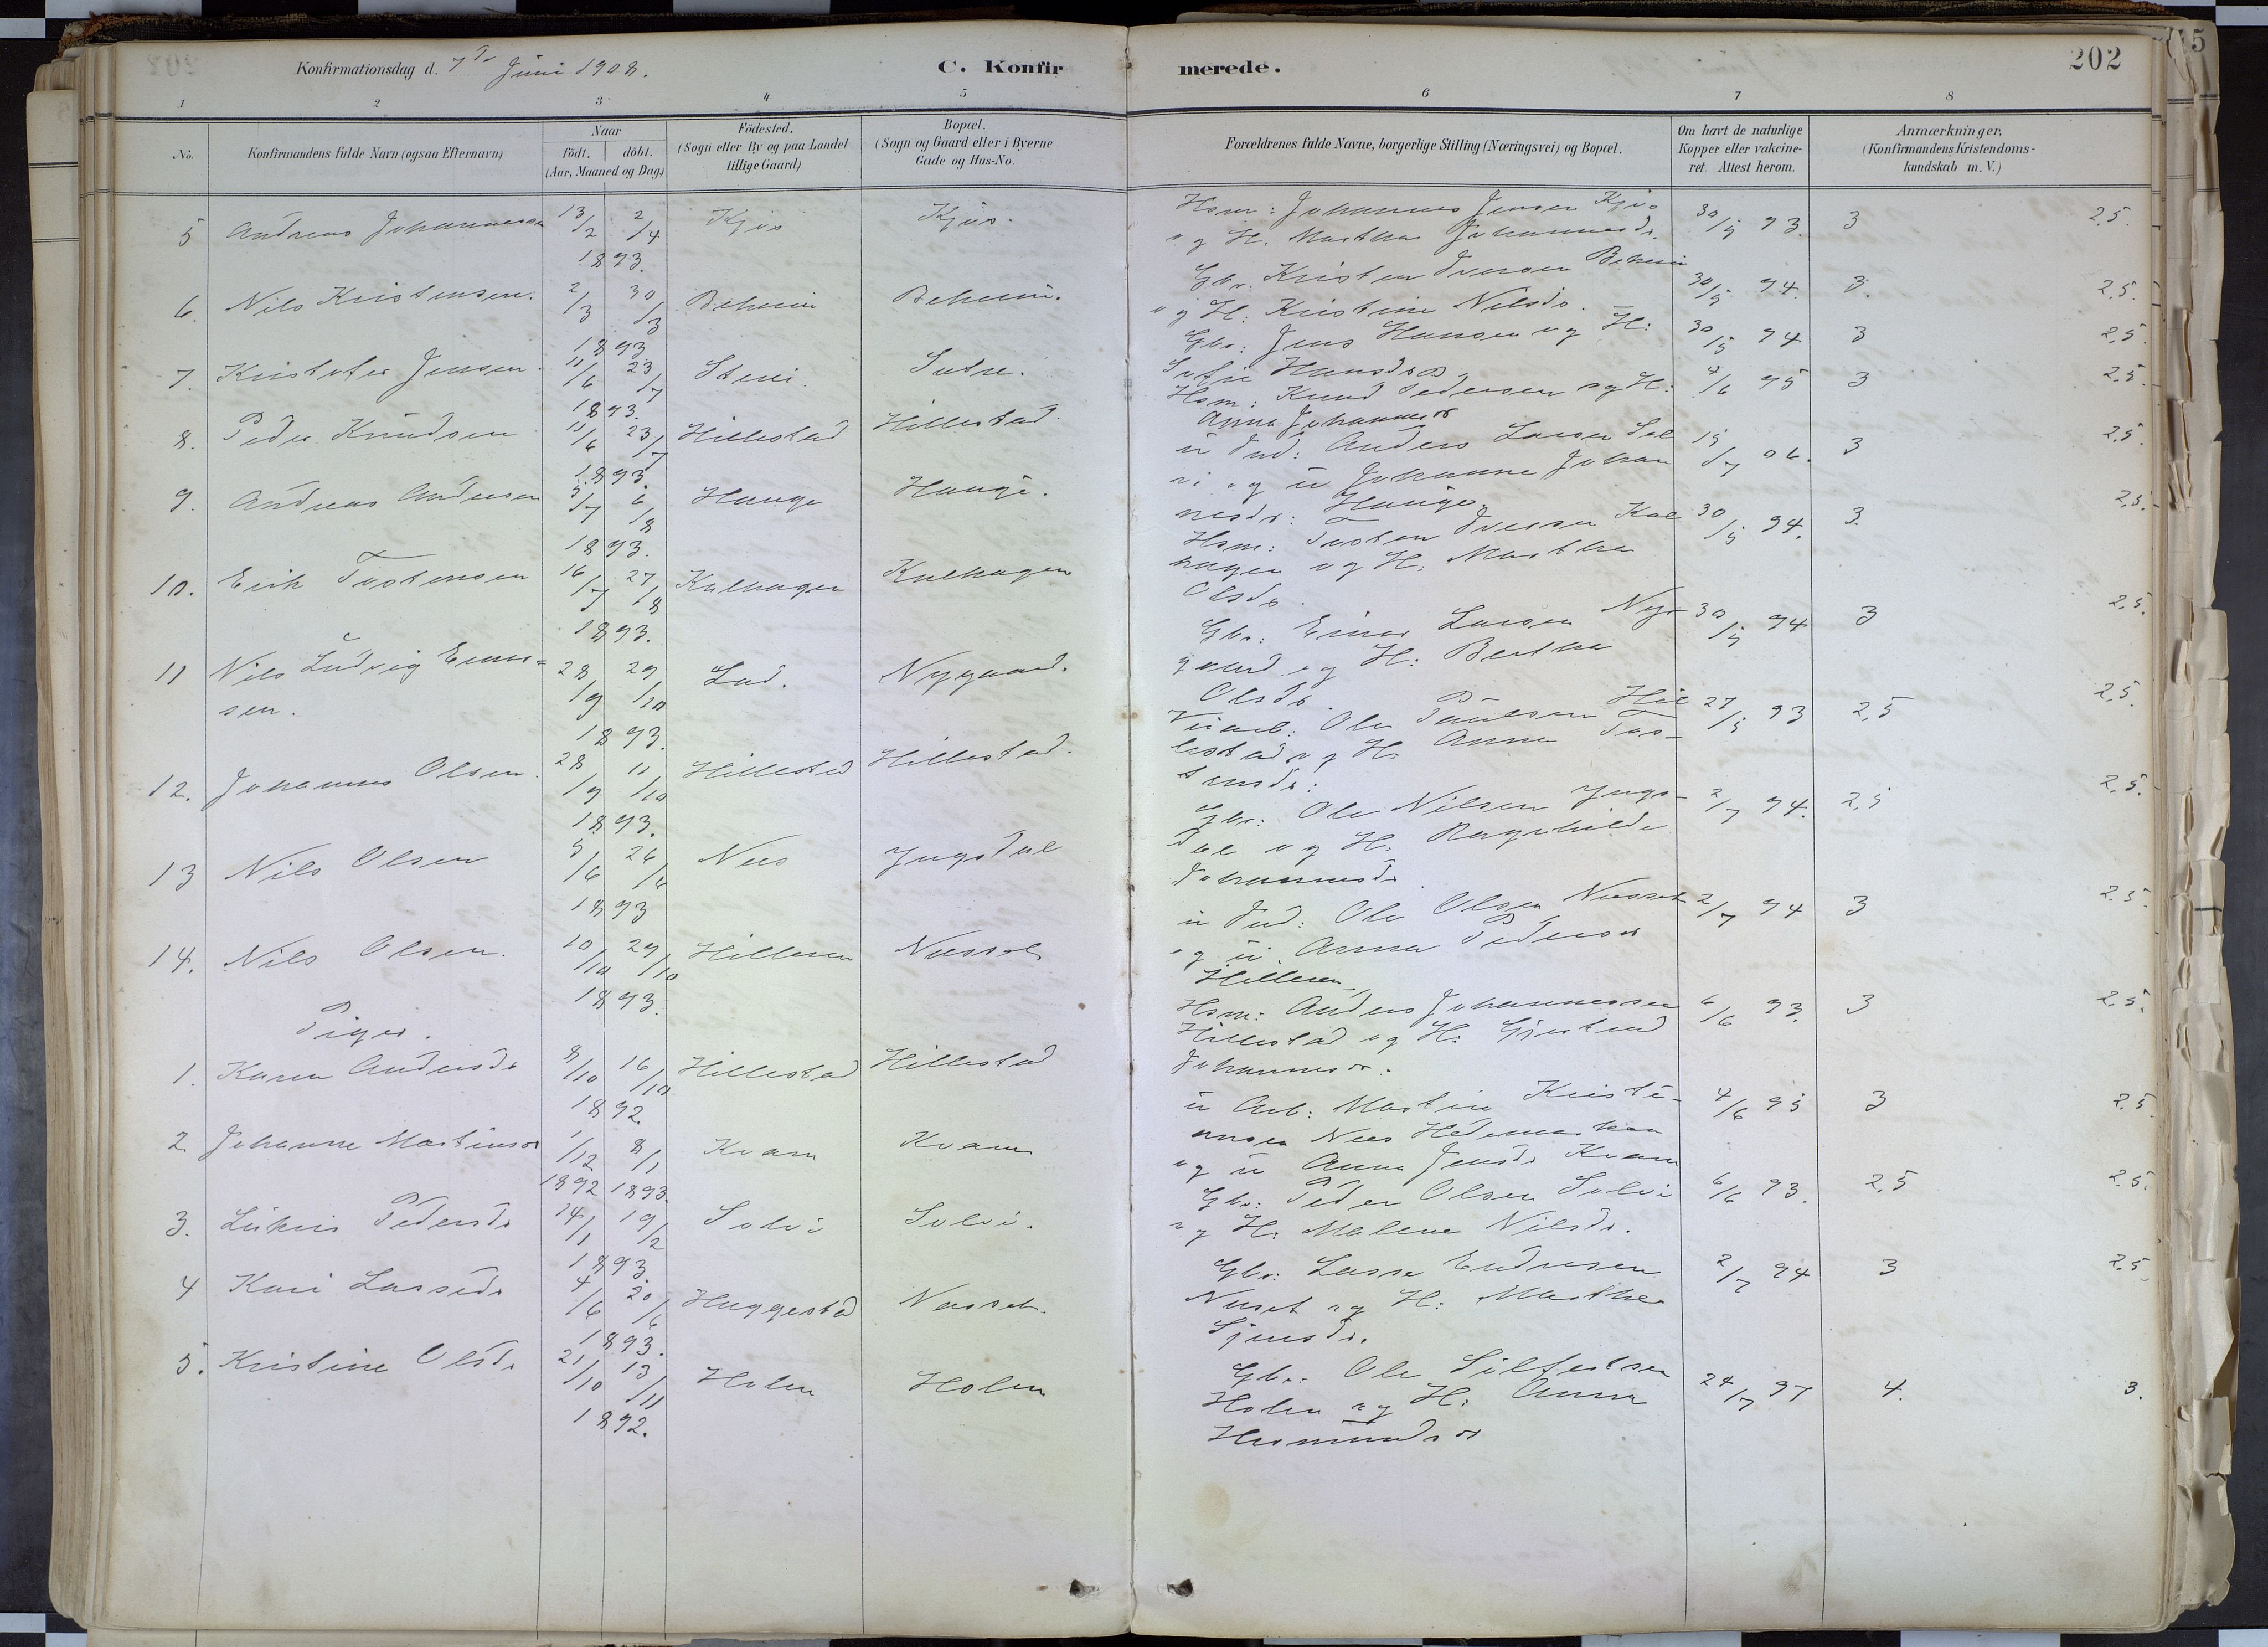 Konfirmationsdag d. 7de Juni 1908.
C. Konfirmerede.
202
1 2 3 4 5 6 7 8
No.
Konfirmandens fulde Navn (ogsaa Efternavn)
Naar
födt. döbt.
(Aar, Maaned og Dag)
Födested.
(Sogn eller By og paa Landet
tillige Gaard)
Bopæl.
(Sogn og Gaard eller i Byerne
Gade og Hus-No.
Forældrenes fulde Navne, borgerlige Stilling (Næringsvei) og Bopæl.
Om havt de naturlige
Kopper eller vakcine-
ret. Attest herom.
Anmærkninger,
(Konfirmandens Kristendoms-
kundskab m. V.)
5 Andreas Johannessen 13/2 2/4 1893. Kjøs Kjøs.
Hsm: Johannes Jensen Kjøs
og H. Martha Johannesdr. 30/5 93. 3 2.5.
6. Nils Kristensen. 2/3 30/3 1893
Gbr. Kristen Iversen
og H: Kristine Nilsdr. 30/5 94. 3. 2.5.
7. Kristofer Jensen. 11/6 23/7 1893.
Gbr: Jens Hansen og H:
Sofie Hansdr 30/5 94 3 2.5.
8. Peder Knudsen 11/6 23/7 1893. Hillestad Hillestad.
Hsm: Knud Pedersen og H:
Anna Johannesdr 4/6 95 3 2.5.
9. Andreas Andersen 5/7 6/8 1893. Hauge Hauge.
u Ind: Anders Larsen Sol
vi og u Johanne Johan
nesdr: Hauge 15/7 06. 3 2.5.
10. Erik Tostensen 16/7 27/8 1893. Kalhagen Kalhagen
Hsm: Tosten Iversen Kal
hagen og H: Martha
Olsdr. 30/5 94. 3. 2.5.
11 Nils Ludvig Einar=
sen. 28/9 29/10 1893. Lad. Nygaard.
Gbr: Einar Larsen Ny-
gaard og H: Bertha
Olsdr. 30/5 94 3 2.5.
12. Johannes Olsen. 28/9 11/10 1893. Hillestad Hillestad.
Veiarb: Ole Paulsen Hil
lestad og H: Anna Tos-
tensdr: 27/5 93 2,5 2.5.
13 Nils Olsen 5/6 26/6 1893 Nes Yngsdal
Gbr: Ole Nilsen Yngs-
dal og H: Ragnhilde
Johannesdr. 2/7 94. 2,5 2.5.
14. Nils Olsen. 10/10 29/10 1893. Hilleren Nesset
u Ind: Ole Olsen Nesset
og u. Anna Pedersdr
Hilleren 2/7 94 3 2.5.
Piger.
1. Karen Andersdr 8/10 16/10 1892. Hillestad Hillestad
Hsm: Anders Johannessen
Hillestad og H: Gjertrud
Johannesdr. 6/6 93. 3 2.5.
2 Johanne Martinsdr 1/12 8/1 1892 1893. Kvam Kvam
u Arb: Martin Kristi-
ansen Nes Hedemarken
og u Anna Jensdr Kvam 4/6 95 3 2.5.
3. Lukris Pedersdr 14/1 19/2 1893. Solvi Solvi.
Gbr: Peder Olsen Solvi
og H: Malene Nilsdr. 6/6 93. 2,5 2.5.
4 Kari Lassedr 4/6 20/6 1893. Huggestad Nesset.
Gbr: Lasse Endresen
Neset og H: Marthe
Sjursdr. 2/7 94 3 2.5.
5. Kristine Olsdr 21/10 13/11 1892. Holen Holen
Gbr: Ole Silfestsen
Holen og H: Anna
Hermundsdr 24/7 97 4. 3.